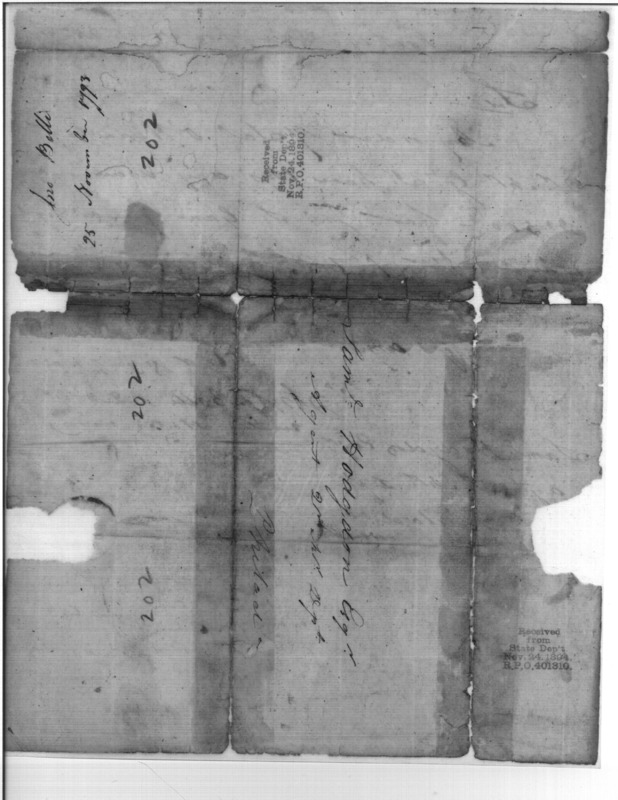 Jno Belli
25 November 1793
202
Received
from
State Dep't
Nov. 24, 1894.
R.P.O. 401310.
Saml Hodgdon Esqr
Agent Dept
Philada
202
202
Received
from
State Dep't
Nov. 24, 1894.
R.P.O. 401310.